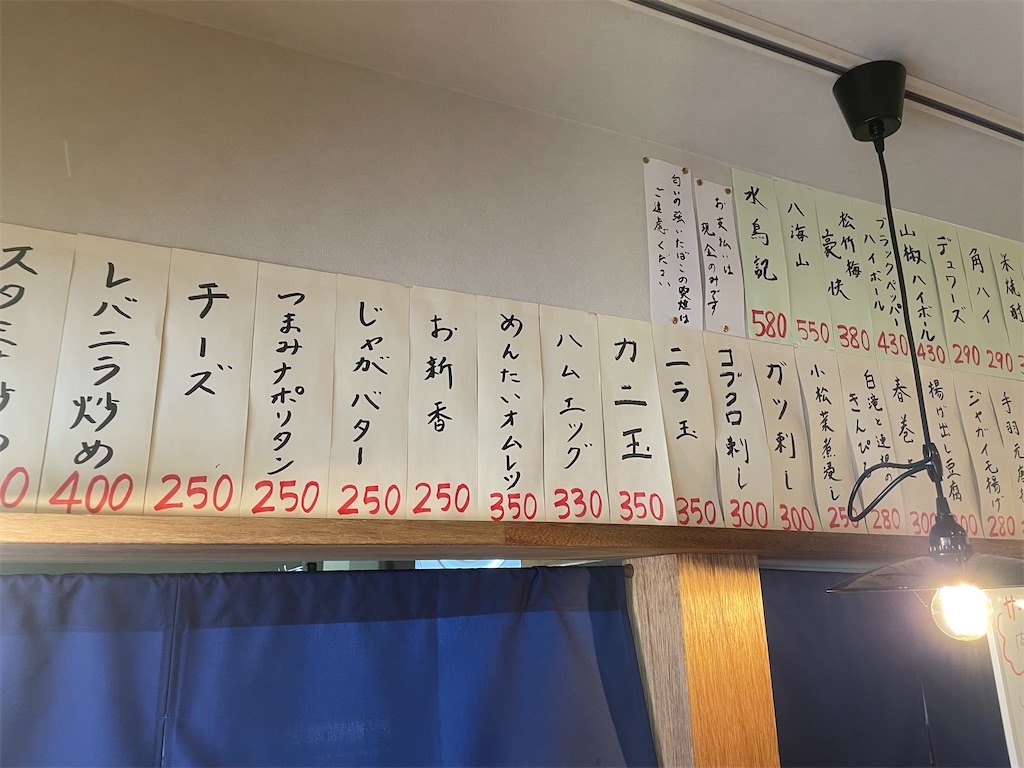 匂いの強いたばこの喫煙は
ご遠慮ください
お支払いは
現金のみです
水鳥記
580
八海山
550
松竹梅
豪快
380
ブラックペッパー
ハイボール
430
山椒ハイボール
430
デュワーズ
290
角ハイ
290
米焼酎
スタミナ炒め
レバニラ炒め
400
チーズ
250
つまみナポリタン
250
じゃがバター
250
お新香
250
めんたいオムレツ
350
ハムエッグ
330
カニ玉
350
ニラ玉
350
コブクロ刺し
300
ガツ刺し
300
小松菜煮浸し
250
白滝と連根の
きんぴら
280
春巻き
300
揚げ出し豆腐
300
ジャガイモ揚げ
280
手羽元唐揚げ